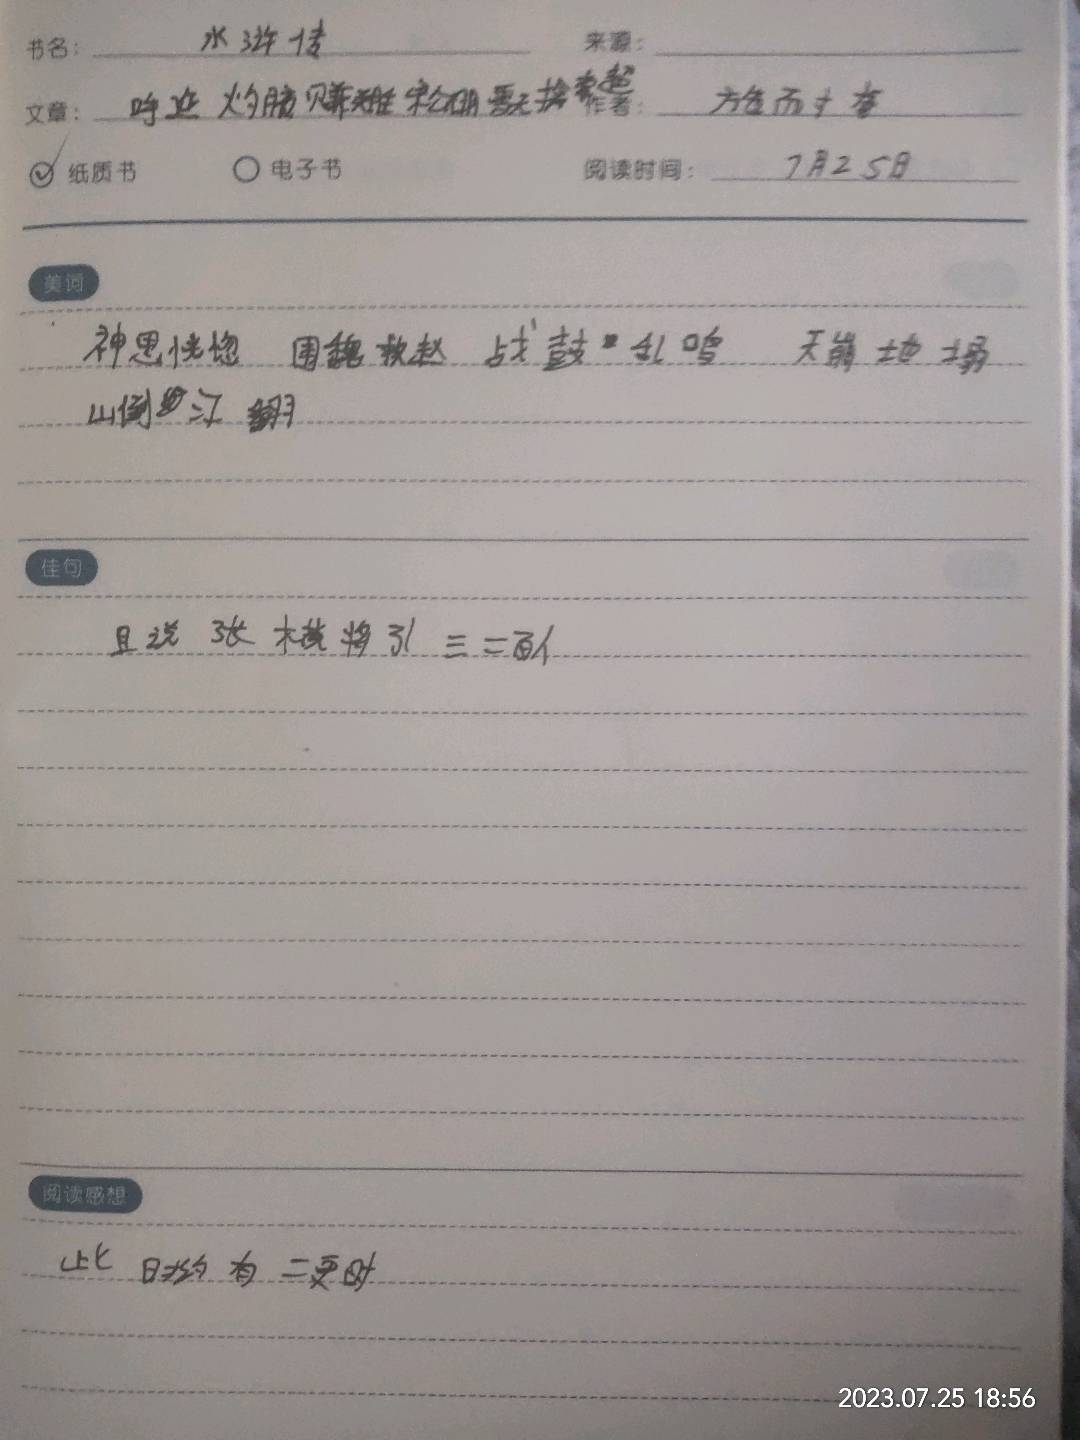 书名： 水浒传 来源：
文章： 呼延灼月夜赚关胜 宋公明雪天擒索超 作者： 施耐庵
纸质书 电子书 阅读时间： 7月25日
美词
神思恍惚 围魏救赵 战鼓乱鸣 天崩地塌
山倒江翻
佳句
且说张横将引三二百人
阅读感想
此时约有二更时
2023.07.25 18:56